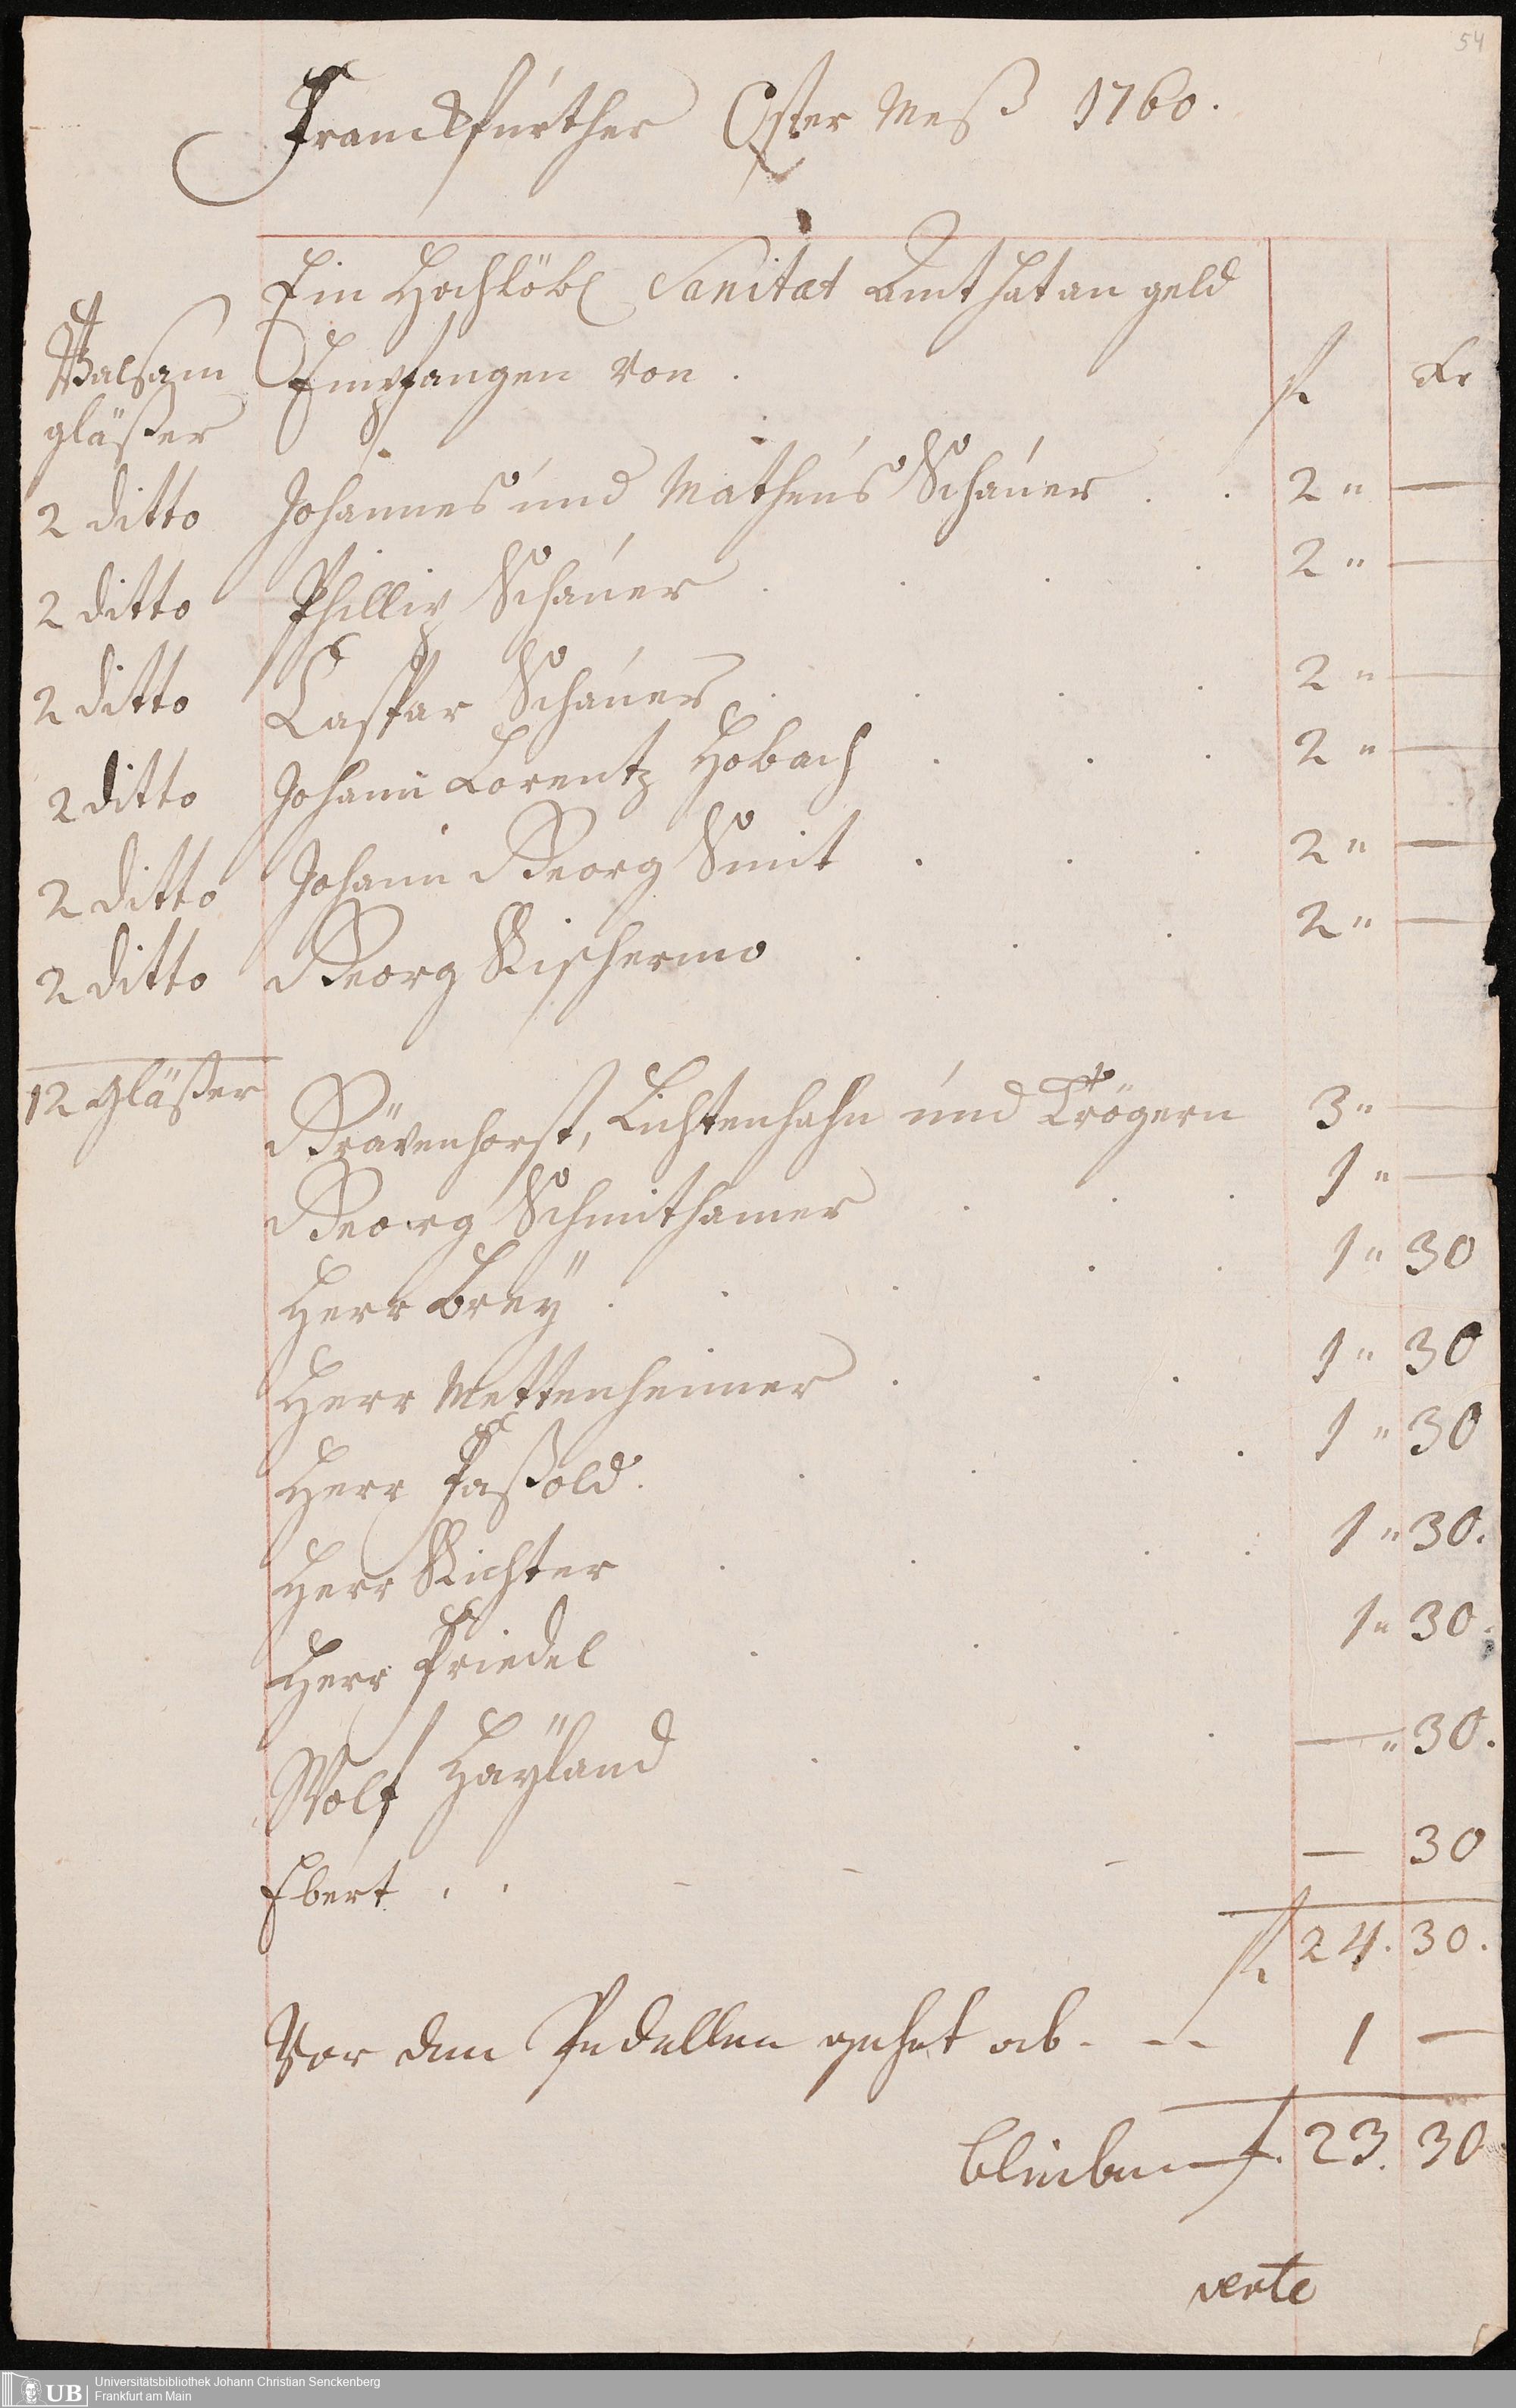 54
Franckfürther Oster Meß 1760.
Ein Hochlöbl Sanitæt Amt hat an geld
Balsam Empfangen von . fl. Kr
gläßer
2 ditto Johannes und Matheus Schauer . . 2 " —
2 ditto Phillip Schauer . . . . 2 " —
2 ditto Caspar Schauer . . . . 2 " —
2 ditto Johann Lorentz Hobach . . . 2 " —
2 ditto Johann Georg Smit . . . 2 " —
2 ditto Georg Rischermo . . . 2 " —
12 gläßer Grävenhorst, Lichtenhahn und Crögern 3 " —
Georg Schmithamer . . . 1 " —
Herr Breÿ . . . . . 1 " 30
Herr Mettenheimer . . . 1 " 30
Herr Faßold . . . . . 1 " 30
Herr Richter . . . . 1 " 30.
Herr Friedel . . . 1 " 30.
Wolf Haÿland . . . — " 30.
Ebert . . — — — — 30
fl. 24. 30.
Vor dem Pedellen gehet ab - -- 1 —
bleiben f. 23. 30
verte
UB Universitätsbibliothek Johann Christian Senckenberg
Frankfurt am Main